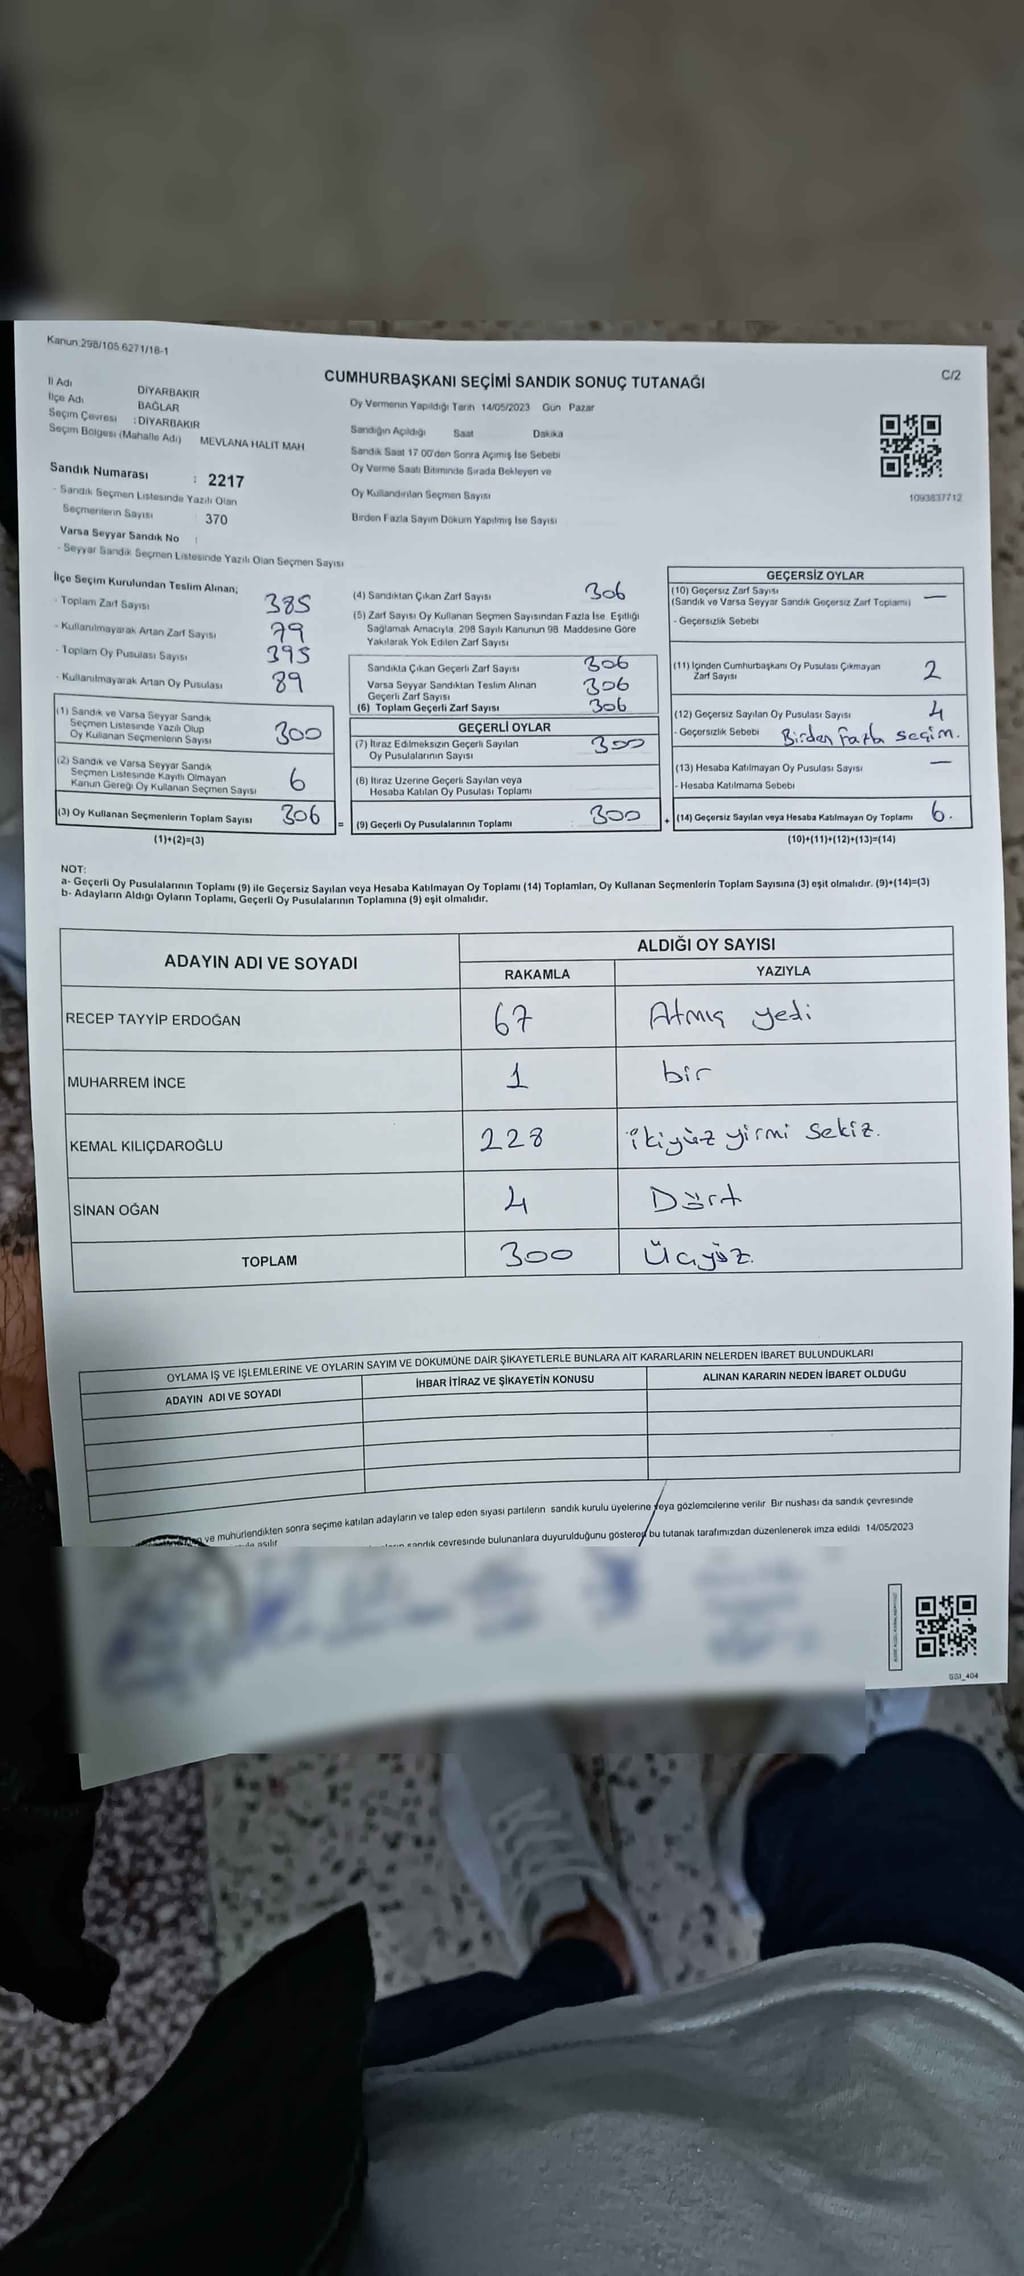 Kanun:298/105.6271/18-1
C/2
CUMHURBAŞKANI SEÇİMİ SANDIK SONUÇ TUTANAĞI
İl Adı DİYARBAKIR
İlçe Adı BAĞLAR
Seçim Çevresi : DİYARBAKIR
Seçim Bölgesi (Mahalle Adı) MEVLANA HALIT MAH
Sandık Numarası : 2217
- Sandık Seçmen Listesinde Yazılı Olan
Seçmenlerin Sayısı 370
Varsa Seyyar Sandık No :
- Seyyar Sandık Seçmen Listesinde Yazılı Olan Seçmen Sayısı
Oy Vermenin Yapıldığı Tarih 14/05/2023 Gün Pazar
Sandığın Açıldığı Saat Dakika
Sandık Saat 17 00'den Sonra Açımış İse Sebebi
Oy Verme Saati Bitiminde Sırada Bekleyen ve
Oy Kullandırılan Seçmen Sayısı
Birden Fazla Sayım Döküm Yapılmış İse Sayısı
1093837712
İlçe Seçim Kurulundan Teslim Alınan;
- Toplam Zarf Sayısı 385
- Kullanılmayarak Artan Zarf Sayısı 79
- Toplam Oy Pusulası Sayısı 395
- Kullanılmayarak Artan Oy Pusulası 89
(1) Sandık ve Varsa Seyyar Sandık
Seçmen Listesinde Yazılı Olup
Oy Kullanan Seçmenlerin Sayısı 300
(2) Sandık ve Varsa Seyyar Sandık
Seçmen Listesinde Kayıtlı Olmayan
Kanun Gereği Oy Kullanan Seçmen Sayısı 6
(3) Oy Kullanan Seçmenlerin Toplam Sayısı 306
(1)+(2)=(3)
(4) Sandıktan Çıkan Zarf Sayısı 306
(5) Zarf Sayısı Oy Kullanan Seçmen Sayısından Fazla İse Eşitliği
Sağlamak Amacıyla, 298 Sayılı Kanunun 98 Maddesine Göre
Yakılarak Yok Edilen Zarf Sayısı
Sandıkta Çıkan Geçerli Zarf Sayısı 306
Varsa Seyyar Sandıktan Teslim Alınan
Geçerli Zarf Sayısı 306
(6) Toplam Geçerli Zarf Sayısı 306
GEÇERLİ OYLAR
(7) İtiraz Edilmeksizin Geçerli Sayılan
Oy Pusulalarının Sayısı 300
(8) İtiraz Üzerine Geçerli Sayılan veya
Hesaba Katılan Oy Pusulası Toplamı
= (9) Geçerli Oy Pusulalarının Toplamı 300
GEÇERSİZ OYLAR
(10) Geçersiz Zarf Sayısı —
(Sandık ve Varsa Seyyar Sandık Geçersiz Zarf Toplamı)
- Geçersizlik Sebebi
(11) İçinden Cumhurbaşkanı Oy Pusulası Çıkmayan
Zarf Sayısı 2
(12) Geçersiz Sayılan Oy Pusulası Sayısı 4
- Geçersizlik Sebebi Birden fazla seçim.
(13) Hesaba Katılmayan Oy Pusulası Sayısı —
- Hesaba Katılmama Sebebi
+ (14) Geçersiz Sayılan veya Hesaba Katılmayan Oy Toplamı 6.
(10)+(11)+(12)+(13)=(14)
NOT:
a- Geçerli Oy Pusulalarının Toplamı (9) ile Geçersiz Sayılan veya Hesaba Katılmayan Oy Toplamı (14) Toplamları, Oy Kullanan Seçmenlerin Toplam Sayısına (3) eşit olmalıdır. (9)+(14)=(3)
b- Adayların Aldığı Oyların Toplamı, Geçerli Oy Pusulalarının Toplamına (9) eşit olmalıdır.
ADAYIN ADI VE SOYADI ALDIĞI OY SAYISI
RAKAMLA YAZIYLA
RECEP TAYYİP ERDOĞAN 67 Atmış yedi
MUHARREM İNCE 1 bir
KEMAL KILIÇDAROĞLU 228 ikiyüz yirmi sekiz.
SİNAN OĞAN 4 Dört
TOPLAM 300 Üçyüz.
OYLAMA İŞ VE İŞLEMLERINE VE OYLARIN SAYIM VE DÖKÜMÜNE DAİR ŞİKAYETLERLE BUNLARA AİT KARARLARIN NELERDEN İBARET BULUNDUKLARI
ADAYIN ADI VE SOYADI İHBAR İTİRAZ VE ŞİKAYETİN KONUSU ALINAN KARARIN NEDEN İBARET OLDUĞU
ve mühürlendikten sonra seçime katılan adayların ve talep eden siyasi partilerin sandık kurulu üyelerine veya gözlemcilerine verilir Bir nüshası da sandık çevresinde
asılır
sandık çevresinde bulunanlara duyurulduğunu gösteren bu tutanak tarafımızdan düzenlenerek imza edildi 14/05/2023